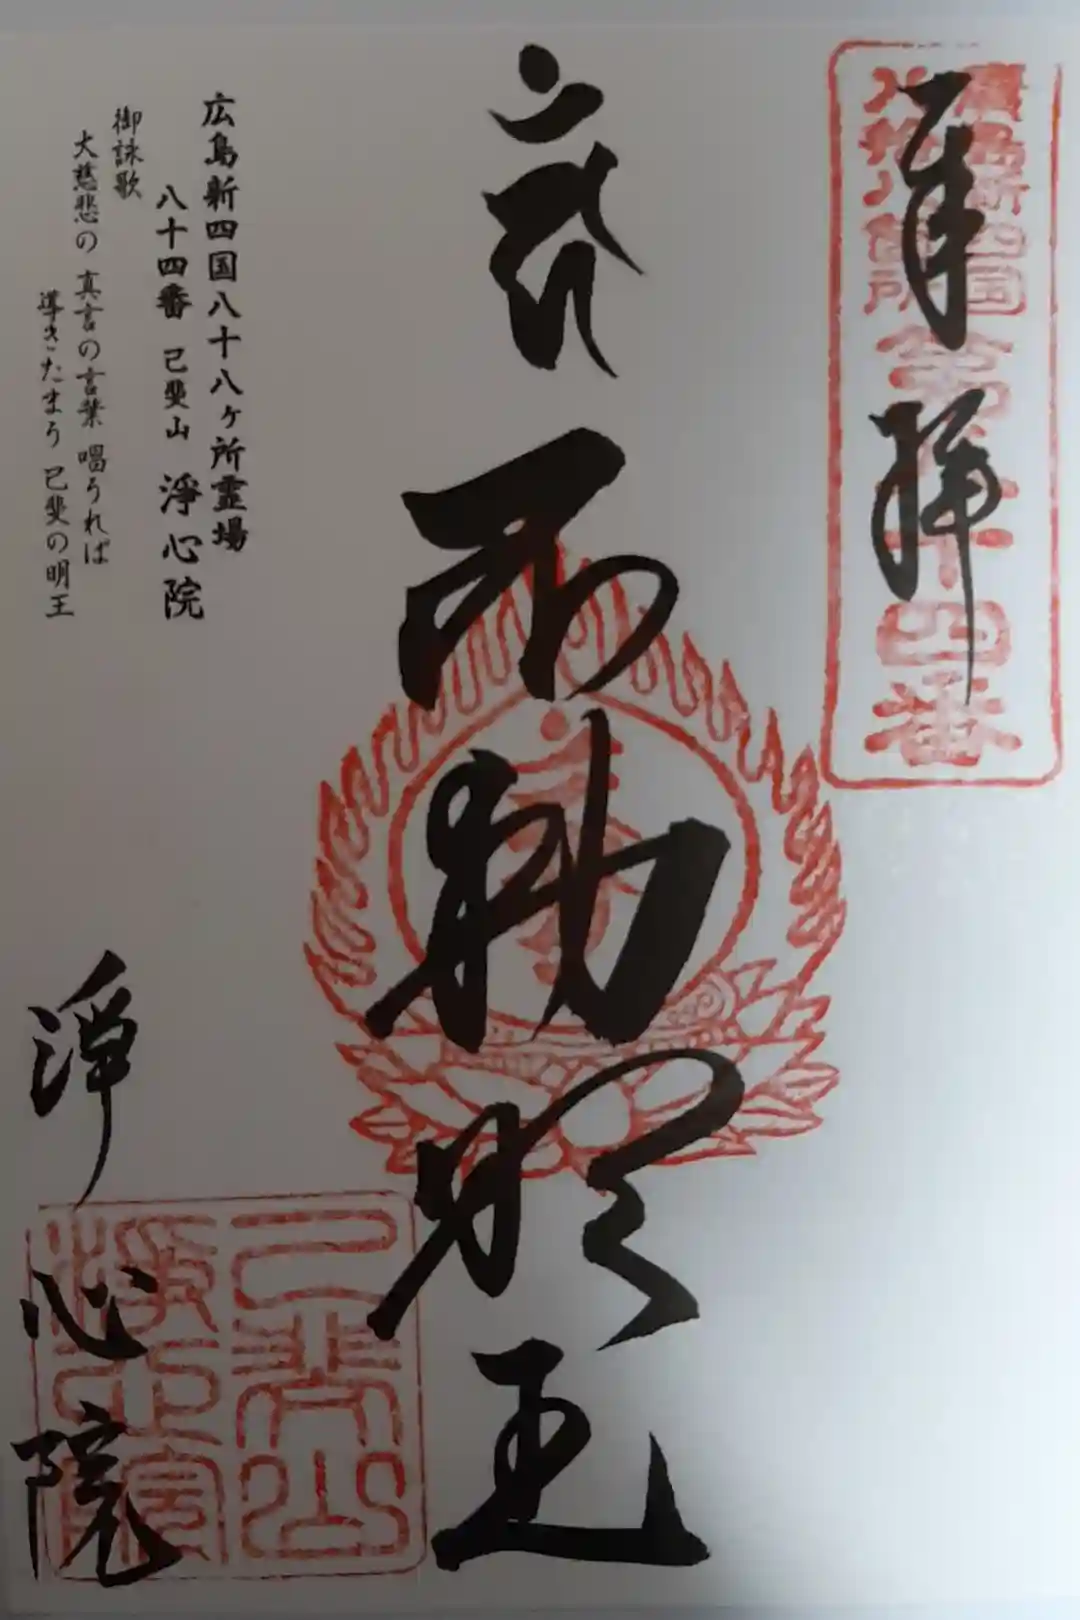 奉拝
廣島新四国
八拾八箇所
第八十四番
不動明王
広島新四国八十八ヶ所霊場
八十四番 己斐山 淨心院
御詠歌
大慈悲の 真言の言葉 唱うれば
導きたまう 己斐の明王
淨心院
己斐山